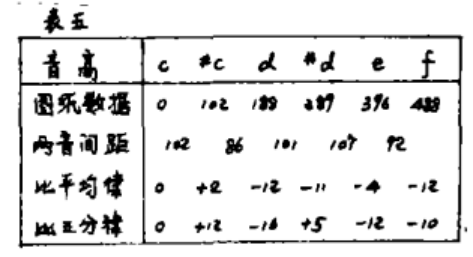 表五
音高 c #c d #d e f
图纸数据 0 102 188 289 396 488
两音间距 102 86 101 107 92
比平均律 0 +2 -12 -11 -4 -12
分律 0 +12 -16 +5 -12 -10